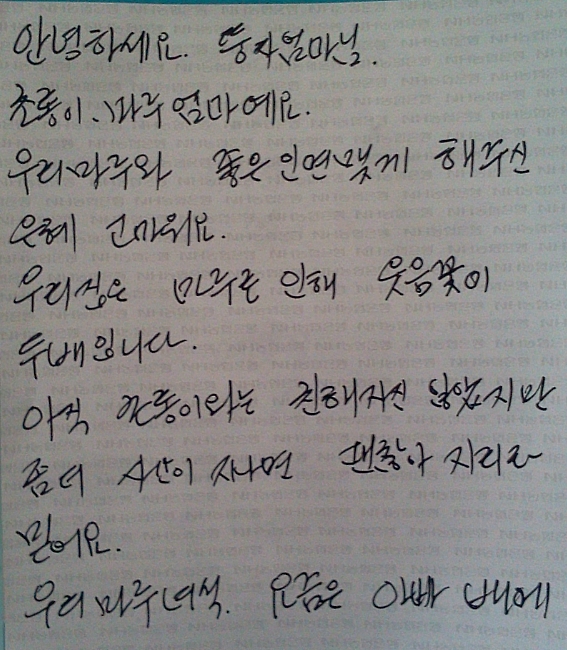 안녕하세요. 뚱자엄마님.
초롱이, 마루 엄마예요.
우리마루와 좋은인연맺게 해주신
은혜 고마워요.
우리집은 마루로 인해 웃음꽃이
두배입니다.
아직 초롱이와는 친해지진 않았지만
좀더 시간이 지나면 괜찮아 지리라
믿어요.
우리마루녀석. 요즘은 아빠 배에